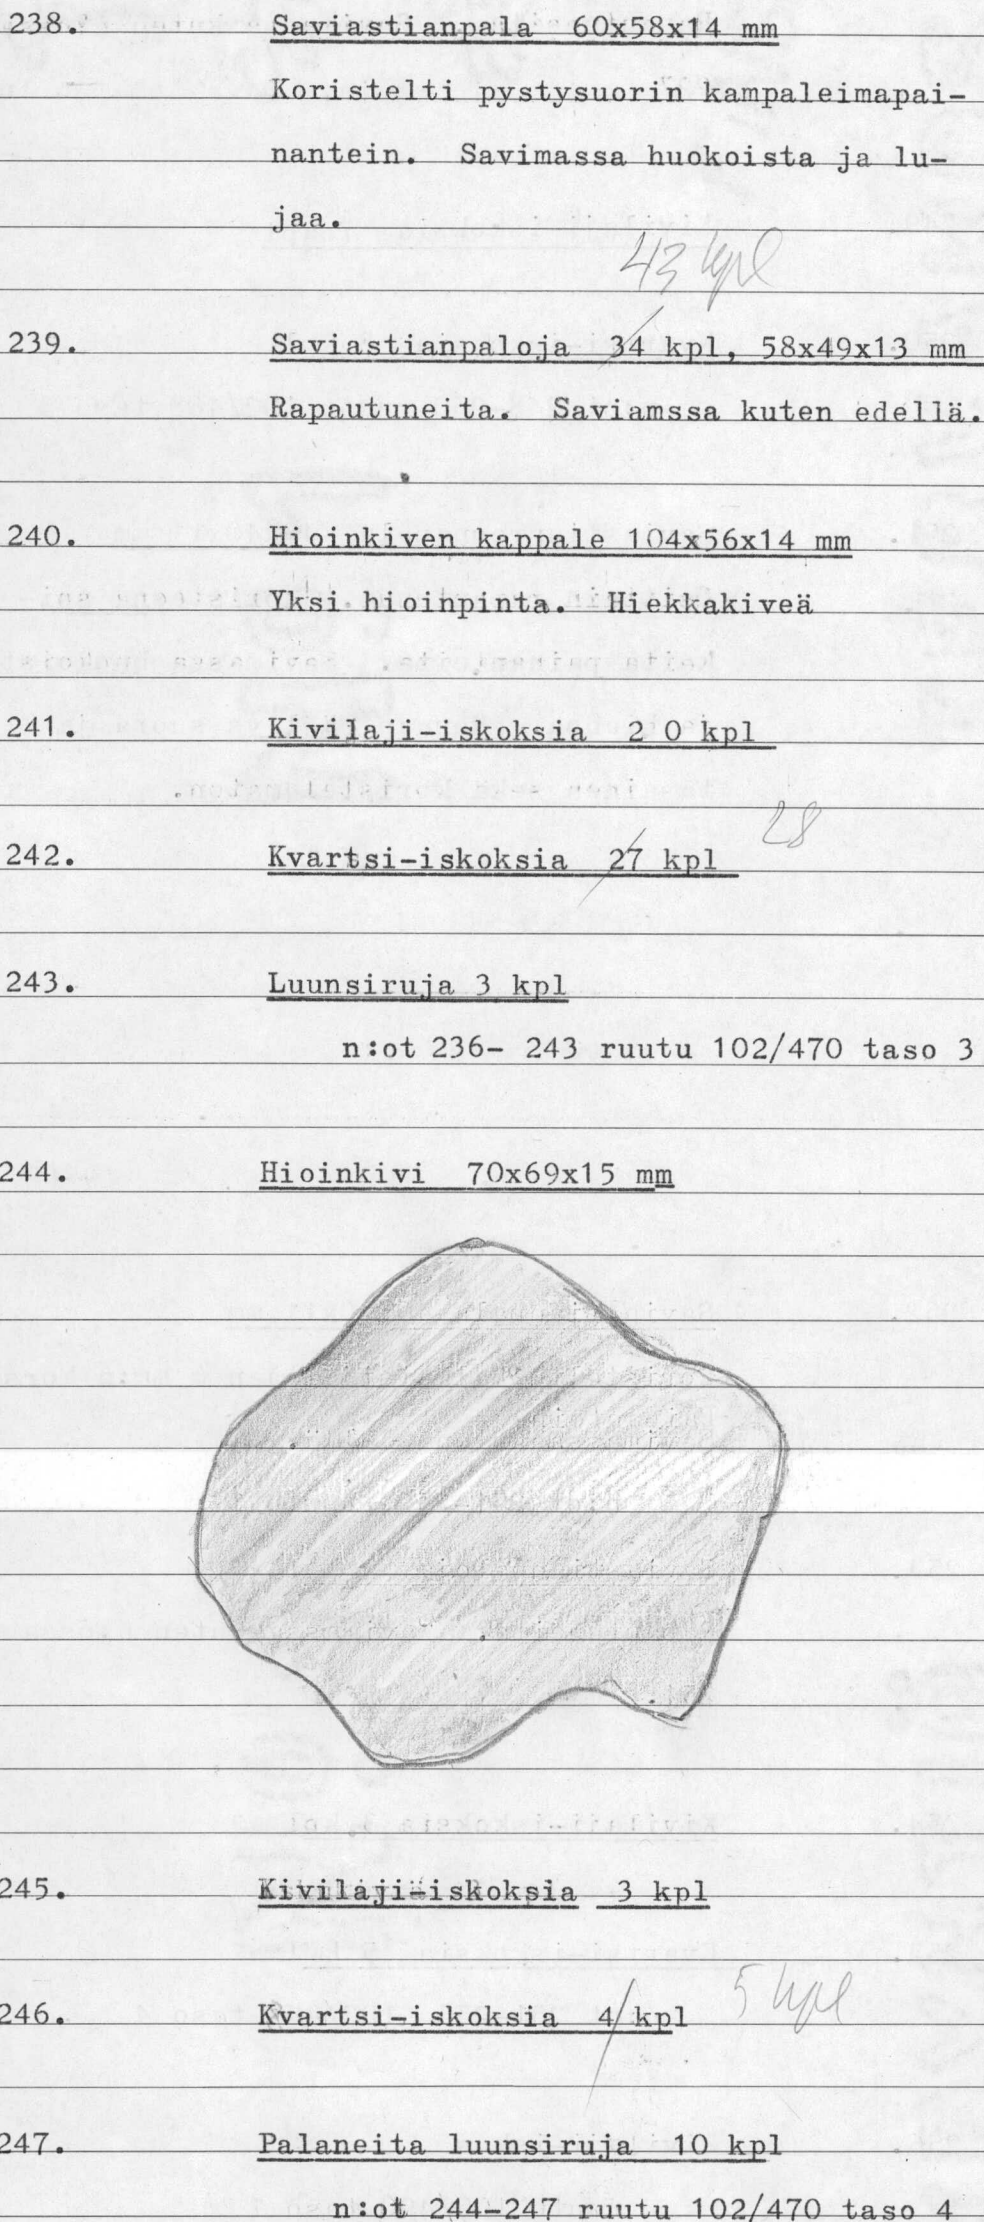 238. Saviastianpala 60x58x14 mm
Koristelti pystysuorin kampaleimapai-
nantein. Savimassa huokoista ja lu-
jaa.
43 kpl
239. Saviastianpaloja 34 kpl, 58x49x13 mm
Rapautuneita. Saviamssa kuten edellä.
240. Hioinkiven kappale 104x56x14 mm
Yksi hioinpinta. Hiekkakiveä
241. Kivilaji-iskoksia 2 0 kpl
28
242. Kvartsi-iskoksia 27 kpl
243. Luunsiruja 3 kpl
n:ot 236- 243 ruutu 102/470 taso 3
244. Hioinkivi 70x69x15 mm
245. Kivilaji-iskoksia 3 kpl
246. Kvartsi-iskoksia 4 kpl 5 kpl
247. Palaneita luunsiruja 10 kpl
n:ot 244-247 ruutu 102/470 taso 4